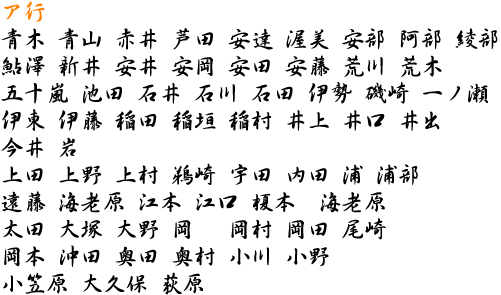 ア行
青木 青山 赤井 芦田 安達 渥美 安部 阿部 綾部
鮎澤 新井 安井 安岡 安田 安藤 荒川 荒木
五十嵐 池田 石井 石川 石田 伊勢 磯崎 一ノ瀬
伊東 伊藤 稲田 稲垣 稲村 井上 井口 井出
今井 岩
上田 上野 上村 鵜崎 宇田 内田 浦 浦部
遠藤 海老原 江本 江口 榎本 海老原
太田 大塚 大野 岡 岡村 岡田 尾崎
岡本 沖田 奥田 奥村 小川 小野
小笠原 大久保 荻原